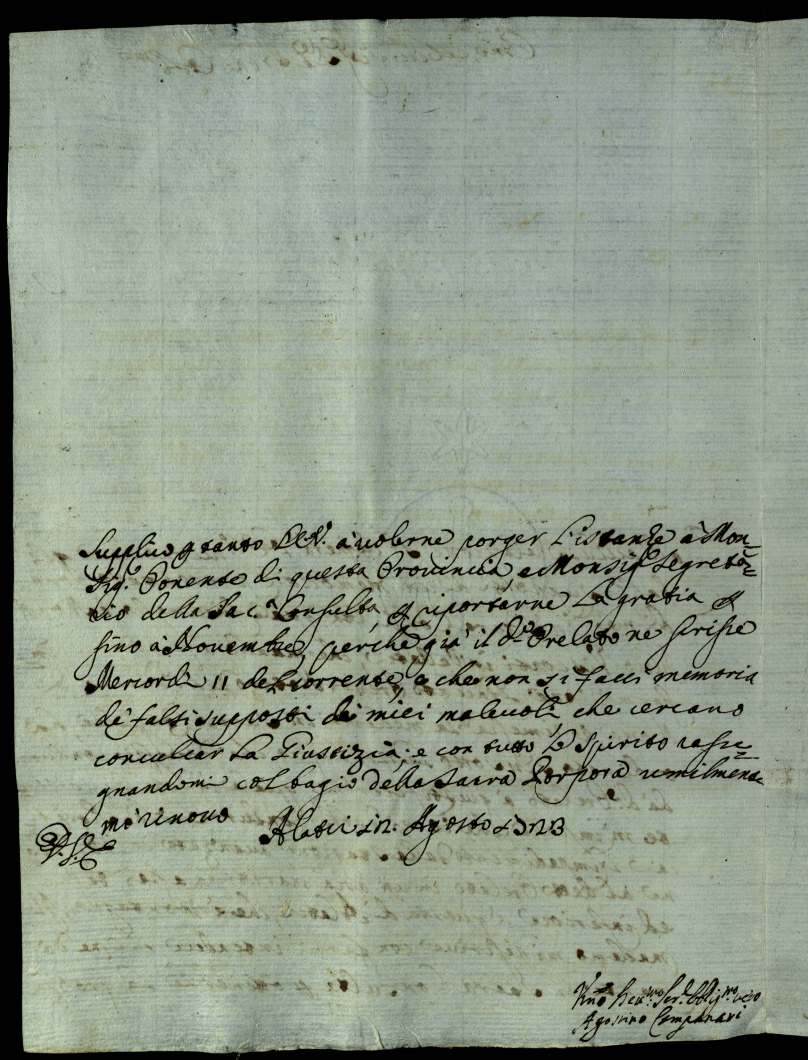 Supplico p tanto V.E. à volerne porger l'istanze à Mon-
Sig.r Ponente di questa Provincia, e Monsig.r Segreta-
rio della Sac.a Consulta, p riportarne la gratia p
fino à Novembre, perche già il d.o Prelato ne scrisse
Mercordì 11 del corrente, e che non si facci memoria
de falsi supposti de miei malevoli, che cercano
conculcar la Giustizia; e con tutto lo spirito rasse-
gnandomi col bagio della Sacra Porpora umilmen-
mi rinovo Alatri 12. Agosto 1723
D. V. E.
Agostino Campanari